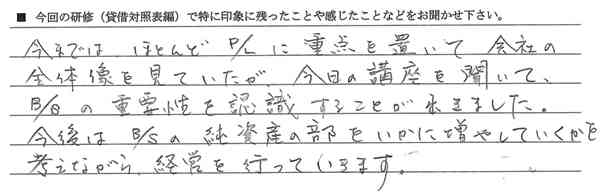 ■ 今回の研修（貸借対照表編）で特に印象に残ったことや感じたことなどをお聞かせ下さい。
今までは ほとんど P/L に重点を置いて 会社の
全体像を見ていたが、今日の講座を聞いて、
B/Sの重要性を認識することが出来ました。
今後は B/Sの純資産の部をいかに増やしていくかを
考えながら、経営を行っていきます。